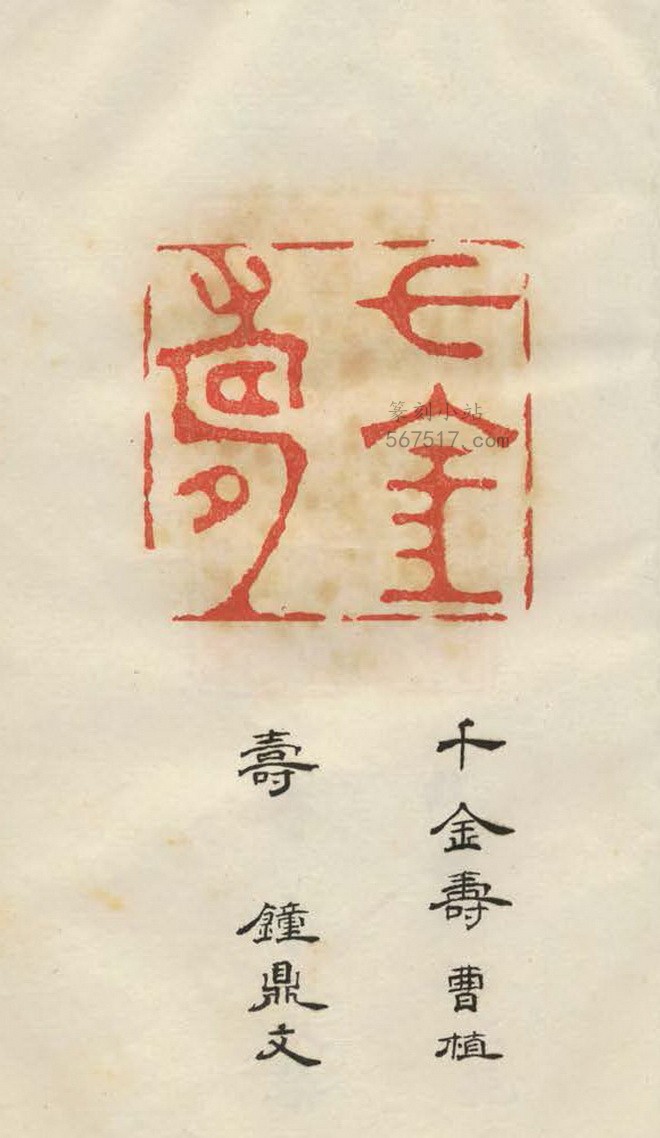 千金壽
篆刻小站
567517.com
千金壽 曹植
壽 鐘鼎文